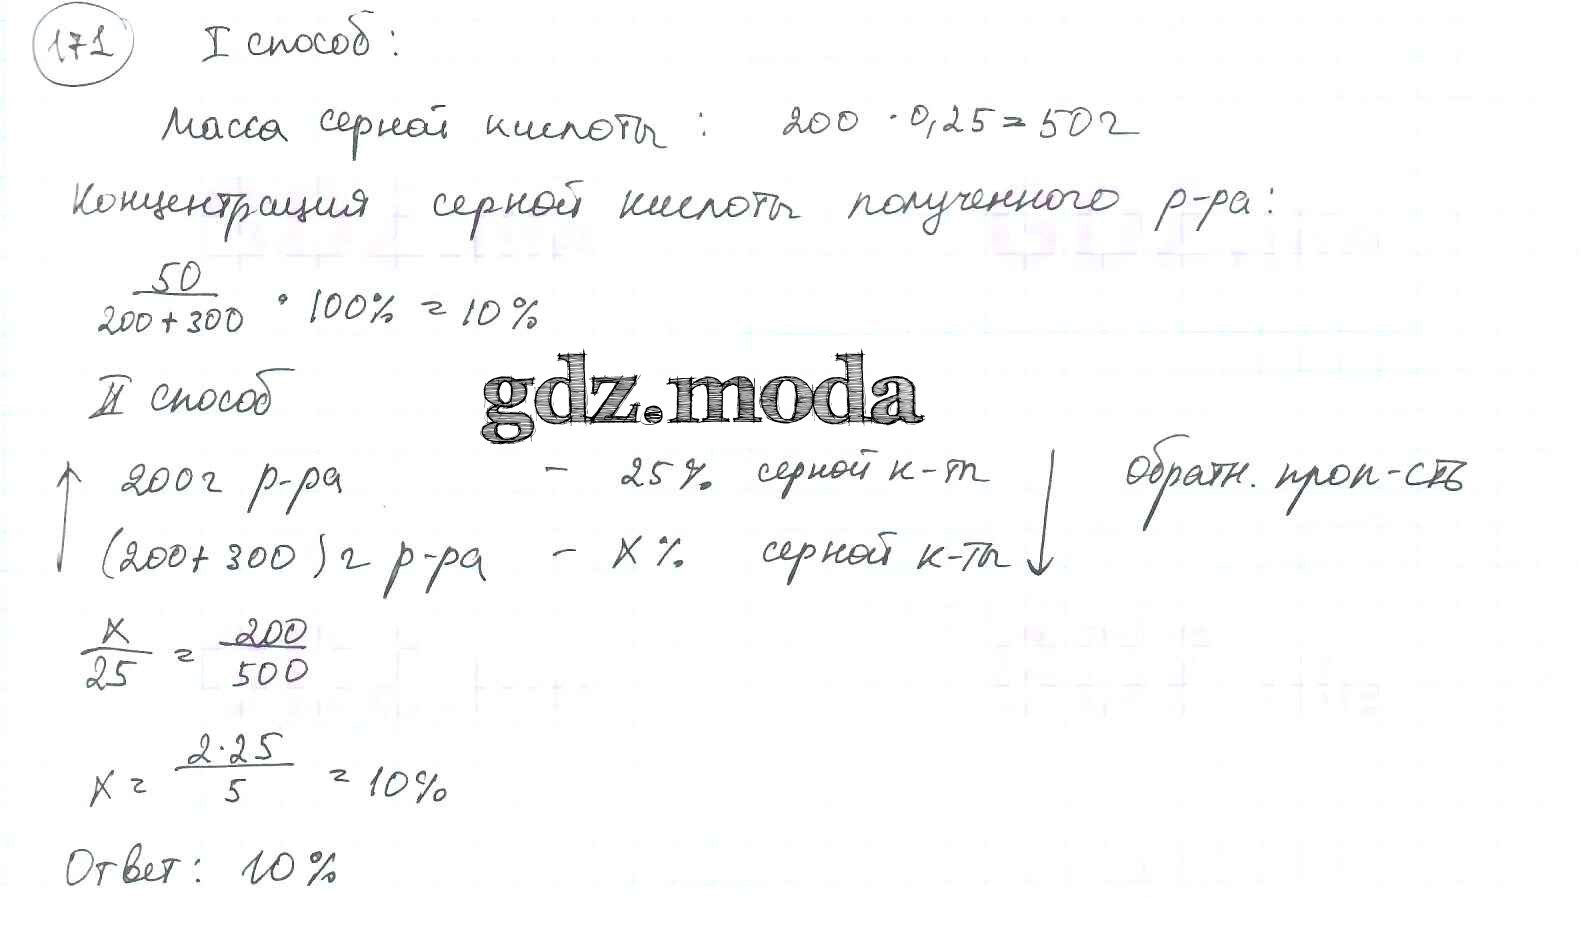 171 I способ:
Масса серной кислоты: 200 · 0,25 = 50 г
Концентрация серной кислоты полученного р-ра:
50
200 + 300 · 100% = 10%
II способ
gdz.moda
200 г р-ра – 25% серной к-ты обратн. проп-сть
(200 + 300) г р-ра – x% серной к-ты
x/25 = 200/500
x = 2·25/5 = 10%
Ответ: 10%